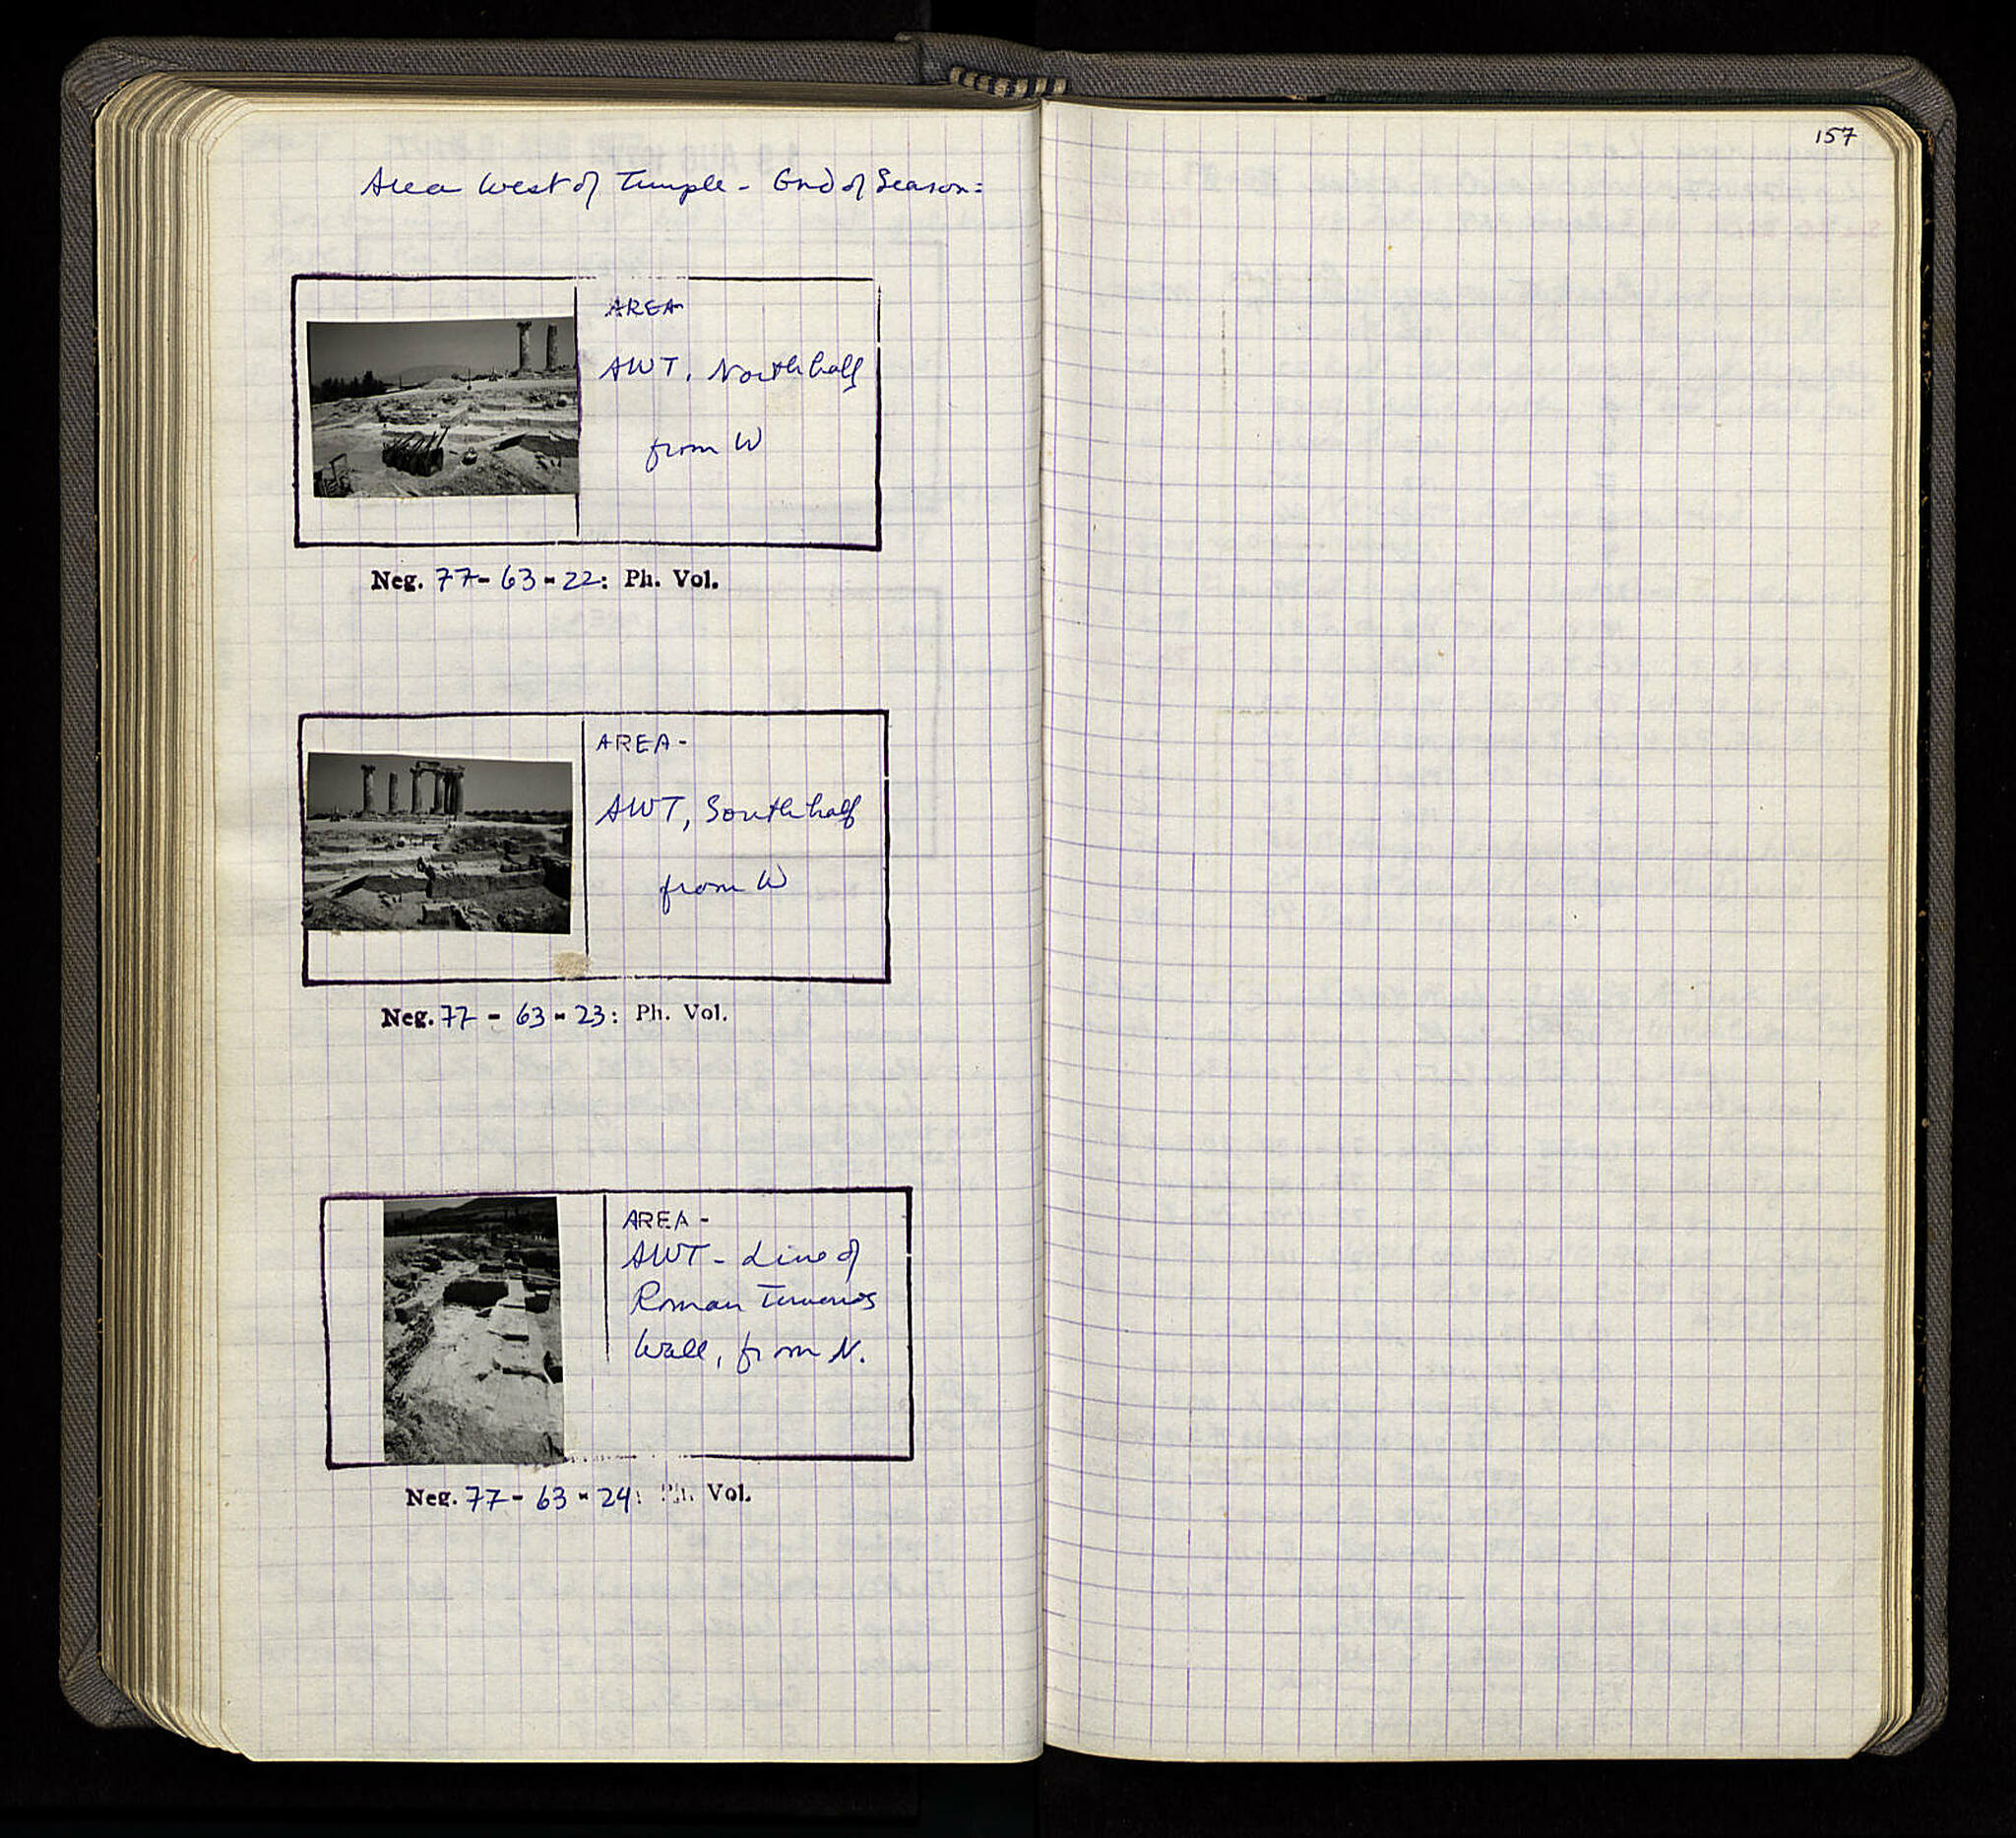 Area West of Temple - End of Season:
AREA-
AWT, North half
from W
Neg. 77-63-22: Ph. Vol.
AREA-
AWT, South half
from W
Neg. 77-63-23: Ph. Vol.
AREA-
AWT - Line of
Roman Temenos
Wall, from N.
Neg. 77-63-24: Ph. Vol.
157